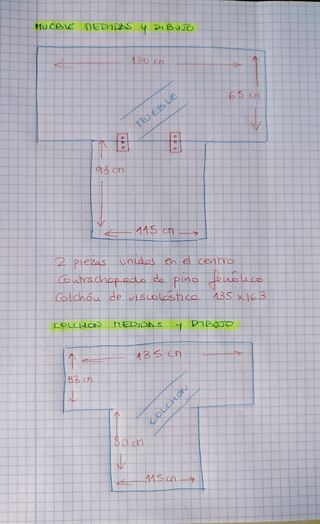 MUEBLE MEDIDAS y DIBUJO
130 cm
65 cm
MUEBLE
93 cm
115 cm
2 piezas unidas en el centro
Contrachapado de pino fenólico
Colchón de viscolástica 135 x 163
COLCHON MEDIDAS y DIBUJO
135 cm
83 cm
COLCHON
80 cm
115 cm